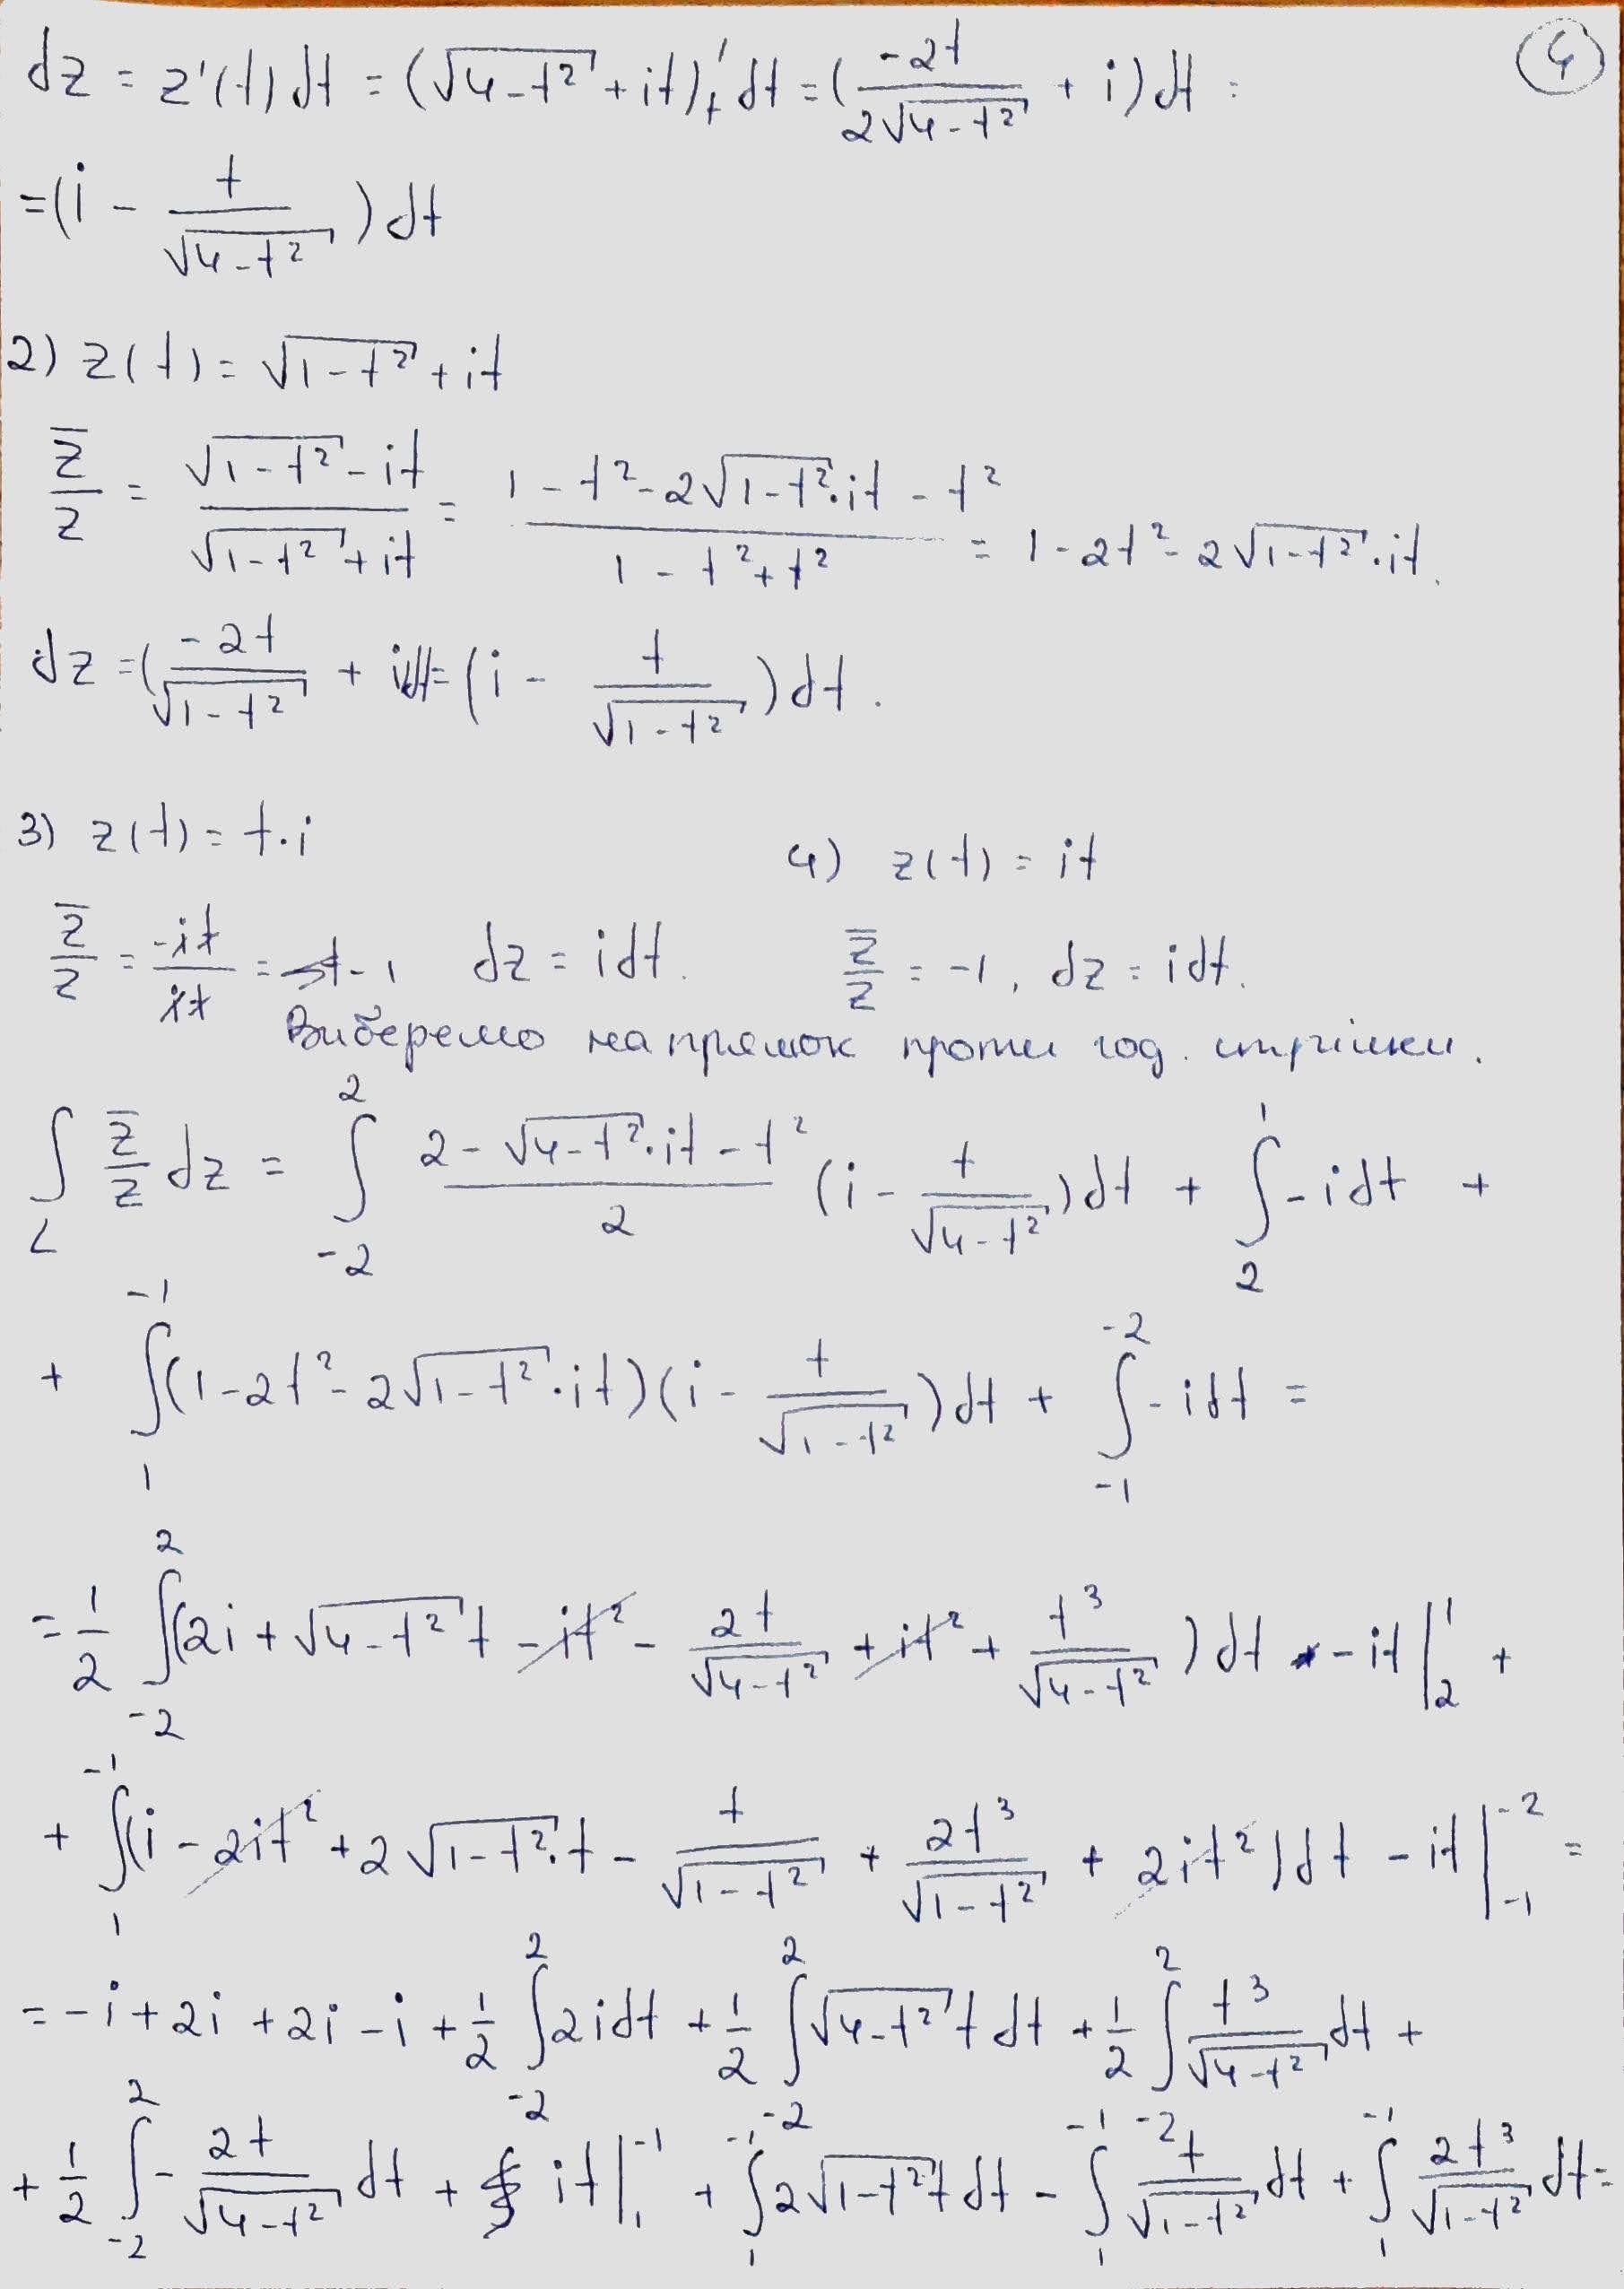 ④
dz = z'(t)dt = (√(4-t²) + it)'ₜ dt = (-2t/(2√(4-t²)) + i)dt =
= (i - t/√(4-t²))dt
2) z(t) = √(1-t²) + it
z̅/z = (√(1-t²) - it)/(√(1-t²) + it) = (1 - t² - 2√(1-t²)·it - t²)/(1 - t² + t²) = 1 - 2t² - 2√(1-t²)·it.
dz = (-2t/√(1-t²) + i)dt = (i - t/√(1-t²))dt.
3) z(t) = t·i
4) z(t) = it
z̅/z = -it/it = -1 dz = idt.
z̅/z = -1, dz = idt.
Виберемо напрямок проти год. стрілки.
∫_L z̅/z dz = ∫_{-2}^{2} (2 - √(4-t²)·it - t²)/2 (i - t/√(4-t²))dt + ∫_{2}^{1} -idt +
+ ∫_{1}^{-1} (1 - 2t² - 2√(1-t²)·it)(i - t/√(1-t²))dt + ∫_{-1}^{-2} -idt =
= 1/2 ∫_{-2}^{2} (2i + √(4-t²)t - it² - 2t/√(4-t²) + it² + t³/√(4-t²))dt - it|_{2}^{1} +
+ ∫_{1}^{-1} (i - 2it² + 2√(1-t²)·t - t/√(1-t²) + 2t³/√(1-t²) + 2it²)dt - it|_{-1}^{-2} =
= -i + 2i + 2i - i + 1/2 ∫_{-2}^{2} 2idt + 1/2 ∫_{-2}^{2} √(4-t²)t dt + 1/2 ∫_{-2}^{2} t³/√(4-t²) dt +
+ 1/2 ∫_{-2}^{2} - 2t/√(4-t²) dt + it|_{1}^{-1} + ∫_{1}^{-1} 2√(1-t²)t dt - ∫_{1}^{-1} t/√(1-t²) dt + ∫_{1}^{-1} 2t³/√(1-t²) dt =